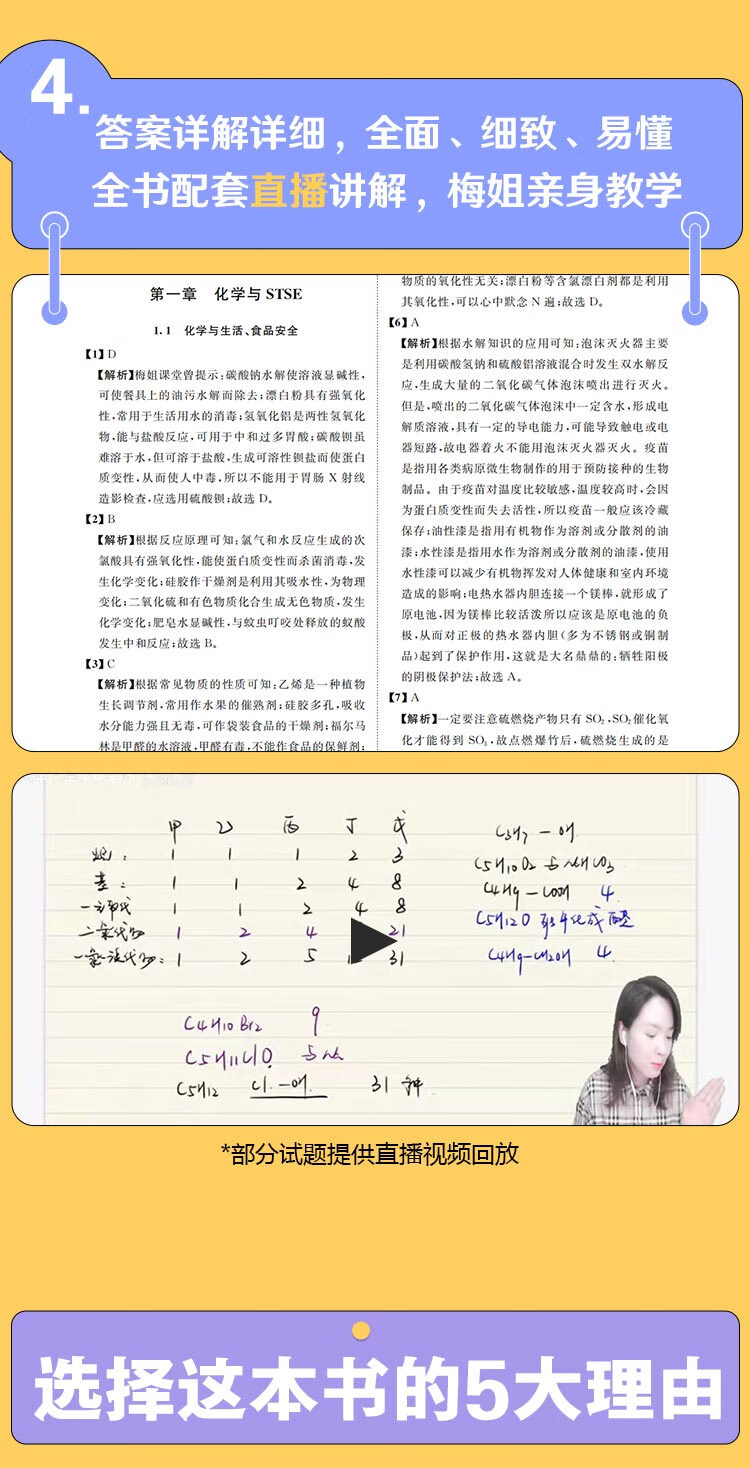 4.
答案详解详细，全面、细致、易懂
全书配套直播讲解，梅姐亲身教学
第一章 化学与STSE
1.1 化学与生活、食品安全
【1】D
【解析】梅姐课堂曾提示：碳酸钠水解使溶液显碱性，
可使餐具上的油污水解而除去；漂白粉具有强氧化
性，常用于生活用水的消毒；氢氧化铝是两性氢氧化
物，能与盐酸反应，可用于中和过多胃酸；碳酸钡虽
难溶于水，但可溶于盐酸，生成可溶性钡盐而使蛋白
质变性，从而使人中毒，所以不能用于胃肠X射线
造影检查，应选用硫酸钡；故选D。
【2】B
【解析】根据反应原理可知：氯气和水反应生成的次
氯酸具有强氧化性，能使蛋白质变性而杀菌消毒，发
生化学变化；硅胶作干燥剂是利用其吸水性，为物理
变化；二氧化硫和有色物质化合生成无色物质，发生
化学变化；肥皂水显碱性，与蚊虫叮咬处释放的蚁酸
发生中和反应；故选B。
【3】C
【解析】根据常见物质的性质可知：乙烯是一种植物
生长调节剂，常用作水果的催熟剂；硅胶多孔，吸收
水分能力强且无毒，可作袋装食品的干燥剂；福尔马
林是甲醛的水溶液，甲醛有毒，不能作食品的保鲜剂；
物质的氧化性无关；漂白粉等含氯漂白剂都是利用
其氧化性，可以心中默念N遍；故选D。
【6】A
【解析】根据水解知识的应用可知：泡沫灭火器主要
是利用碳酸氢钠和硫酸铝溶液混合时发生双水解反
应，生成大量的二氧化碳气体泡沫喷出进行灭火。
但是，喷出的二氧化碳气体泡沫中一定含水，形成电
解质溶液，具有一定的导电能力，可能导致触电或电
器短路，故电器着火不能用泡沫灭火器灭火。疫苗
是指用各类病原微生物制作的用于预防接种的生物
制品。由于疫苗对温度比较敏感，温度较高时，会因
为蛋白质变性而失去活性，所以疫苗一般应该冷藏
保存；油性漆是指用有机物作为溶剂或分散剂的油
漆；水性漆是指用水作为溶剂或分散剂的油漆，使用
水性漆可以减少有机物挥发对人体健康和室内环境
造成的影响；电热水器内胆连接一个镁棒，就形成了
原电池，因为镁棒比较活泼所以应该是原电池的负
极，从而对正极的热水器内胆（多为不锈钢或铜制
品）起到了保护作用，这就是大名鼎鼎的：牺牲阳极
的阴极保护法；故选A。
【7】A
【解析】一定要注意硫燃烧产物只有SO₂，SO₂催化氧
化才能得到SO₃，故点燃爆竹后，硫燃烧生成的是
甲 乙 丙 丁 戊
烷： 1 1 1 2 3
基： 1 1 2 4 8
一元取代 1 1 2 4 8
二氯代物 1 2 4 21
一氯一溴代物： 1 2 5 31
C₃H₇—OH
C₅H₁₀O₂ 与NaHCO₃
C₄H₉—COOH 4
C₅H₁₂O 能氧化成醛
C₄H₉—CH₂OH 4
C₄H₁₀Br₂ 9
C₅H₁₁ClO 与Na
C₅H₁₂ Cl. —OH. 31种
*部分试题提供直播视频回放
选择这本书的5大理由